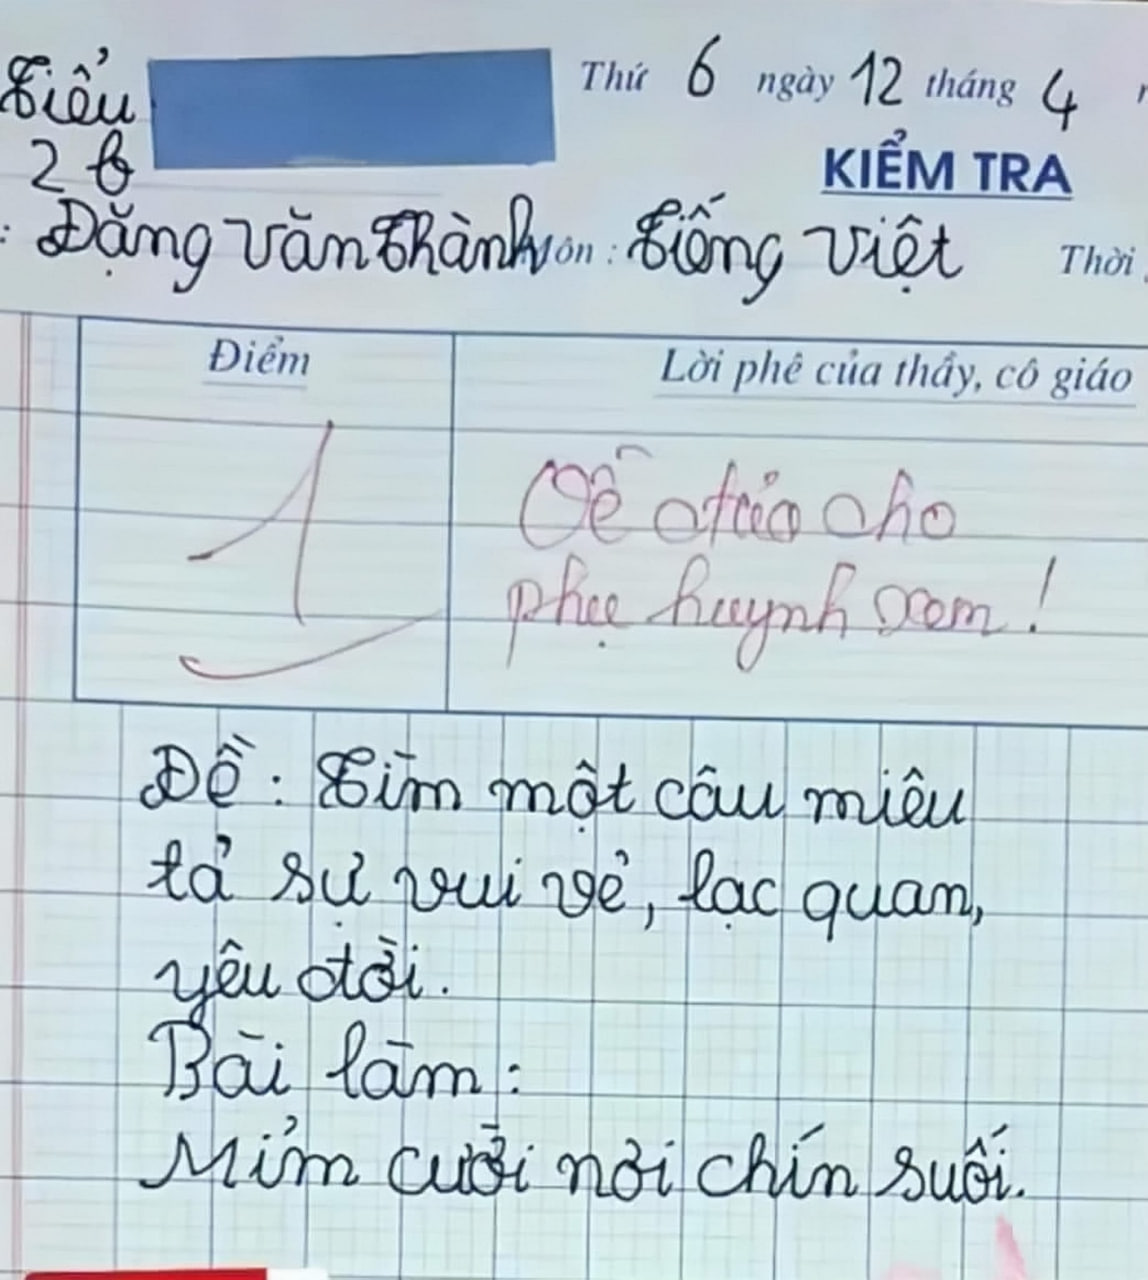 Tiểu
Thứ 6 ngày 12 tháng 4
2 b
KIỂM TRA
: Đặng Văn Thành Môn : Tiếng Việt Thời
Điểm
Lời phê của thầy, cô giáo
1
Về đưa cho
phụ huynh xem !
Đề : Tìm một câu miêu
tả sự vui vẻ, lạc quan,
yêu đời.
Bài làm :
Mỉm cười nơi chín suối.